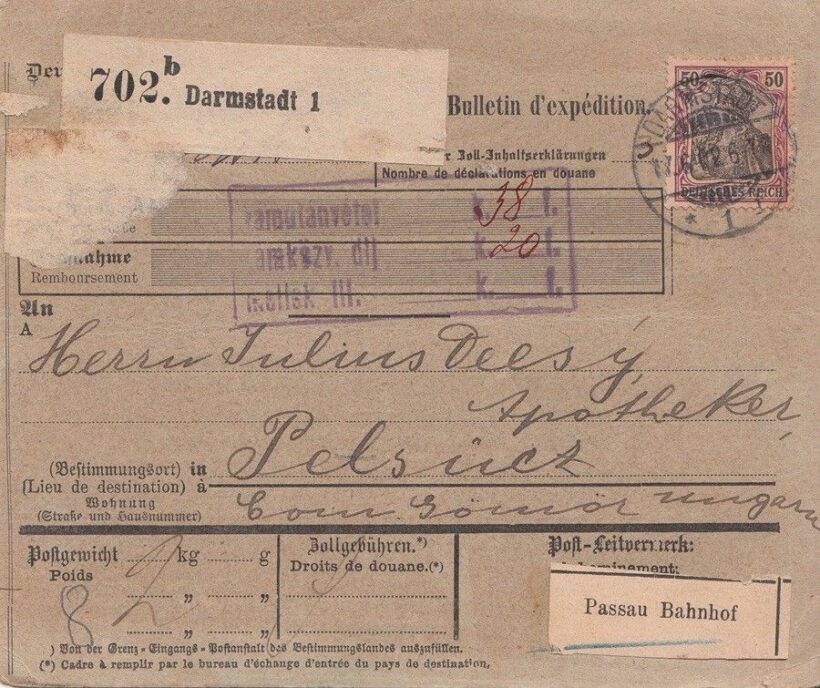 Der
702.b Darmstadt 1
Bulletin d'expédition.
50 50
DARMSTADT
* 1
DEUTSCHES REICH
r Zoll-Inhaltserklärungen
Nombre de déclarations en douane
k. 38 f.
k. 20 f.
k. f.
nahme
Remboursement
An
A
Herrn Julius Deesÿ
Apotheker,
(Bestimmungsort) in Pelsücz
(Lieu de destination) à
Wohnung
(Straße und Hausnummer)
Com. Gömör Ungarn
Postgewicht kg g
Poids
" "
" "
8 2
Zollgebühren.*)
Droits de douane.(*)
Post-Leitvermerk:
inement:
Passau Bahnhof
) Von der Grenz-Eingangs-Postanstalt des Bestimmungslandes auszufüllen.
(*) Cadre à remplir par le bureau d'échange d'entrée du pays de destination.